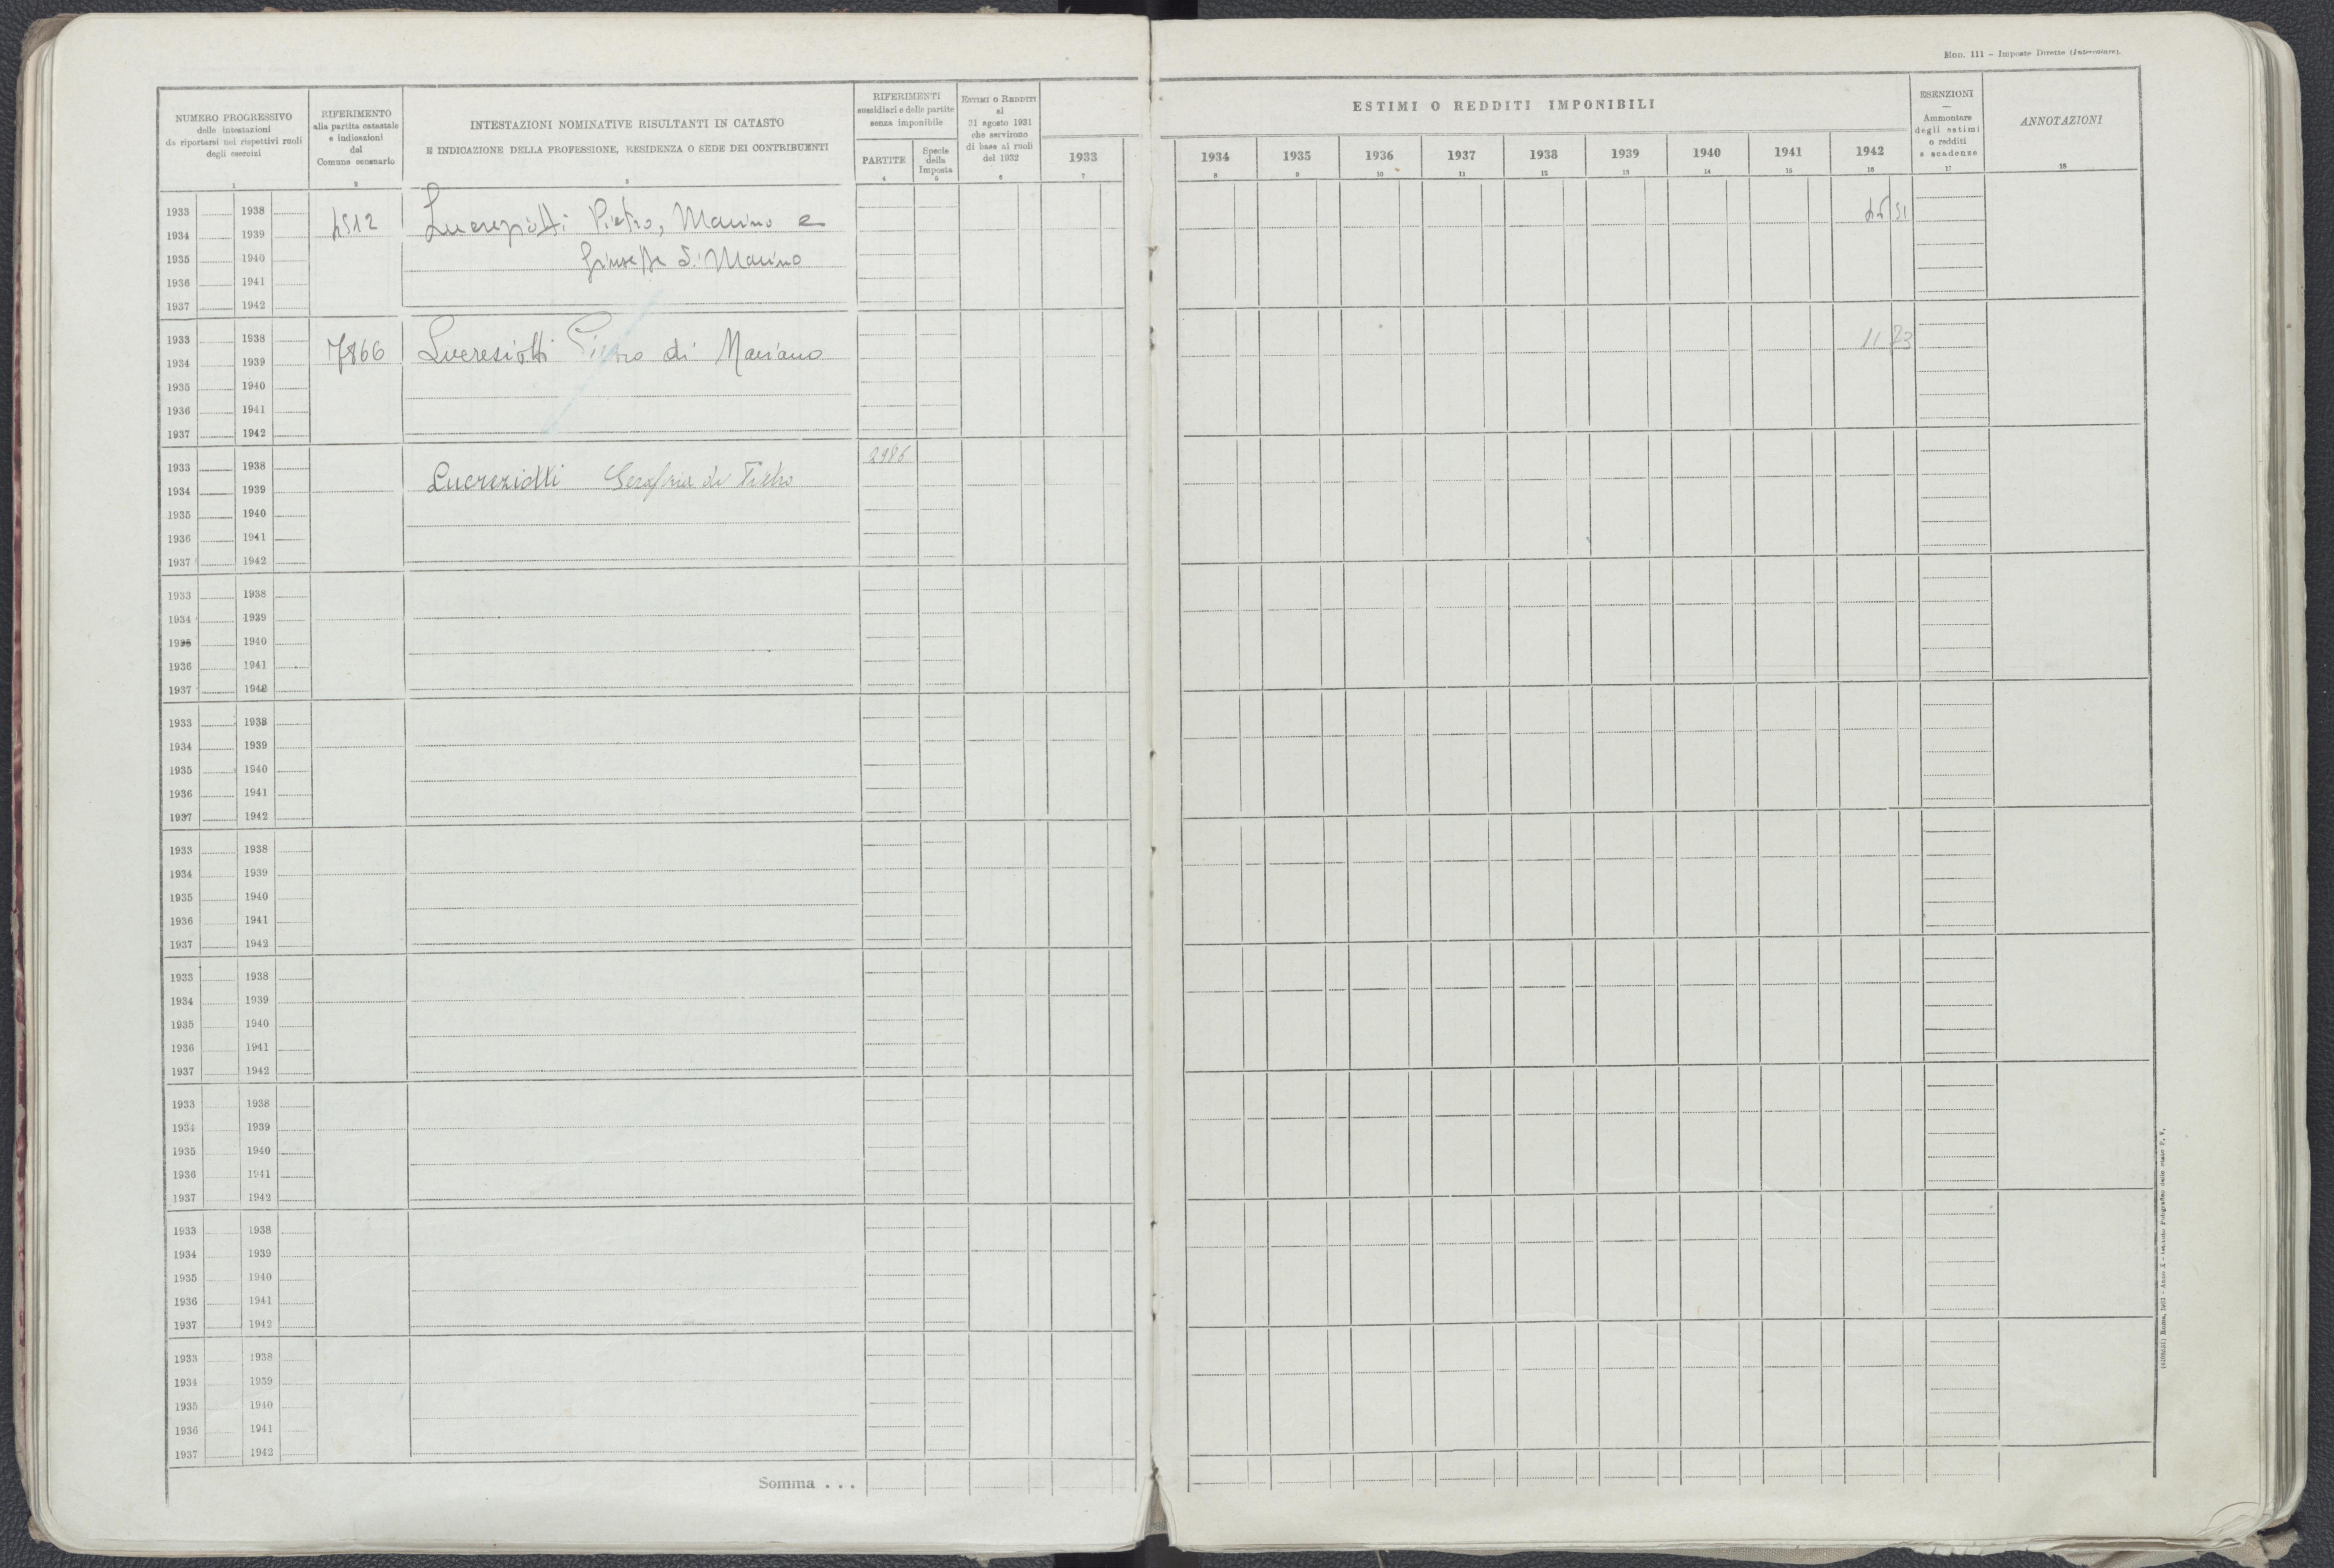 Mod. 111 – Imposte Dirette (Intercalare).
NUMERO PROGRESSIVO
delle intestazioni
da riportarsi nei rispettivi ruoli
degli esercizi
1
RIFERIMENTO
alla partita catastale
e indicazioni
del
Comune censuario
2
INTESTAZIONI NOMINATIVE RISULTANTI IN CATASTO
E INDICAZIONE DELLA PROFESSIONE, RESIDENZA O SEDE DEI CONTRIBUENTI
3
RIFERIMENTI
sussidiari e delle partite
senza imponibile
PARTITE
4
Specie
della
Imposta
5
ESTIMI O REDDITI
al
31 agosto 1931
che servirono
di base ai ruoli
del 1932
6
1933
7
ESTIMI O REDDITI IMPONIBILI
1934 1935 1936 1937 1938 1939 1940 1941 1942
8 9 10 11 12 13 14 15 16
ESENZIONI
—
Ammontare
degli estimi
o redditi
e scadenze
17
ANNOTAZIONI
18
1933 1938
1934 1939
1935 1940
1936 1941
1937 1942
4512 Lucreziotti Pietro, Marino e
Giuseppe di Marino
1933 1938
1934 1939
1935 1940
1936 1941
1937 1942
7866 Lucresiotti di Mariano
11 23
1933 1938
1934 1939
1935 1940
1936 1941
1937 1942
Lucreziotti di Pietro
2986
1933 1938
1934 1939
1935 1940
1936 1941
1937 1942
1933 1938
1934 1939
1935 1940
1936 1941
1937 1942
1933 1938
1934 1939
1935 1940
1936 1941
1937 1942
1933 1938
1934 1939
1935 1940
1936 1941
1937 1942
1933 1938
1934 1939
1935 1940
1936 1941
1937 1942
1933 1938
1934 1939
1935 1940
1936 1941
1937 1942
1933 1938
1934 1939
1935 1940
1936 1941
1937 1942
Somma . . .